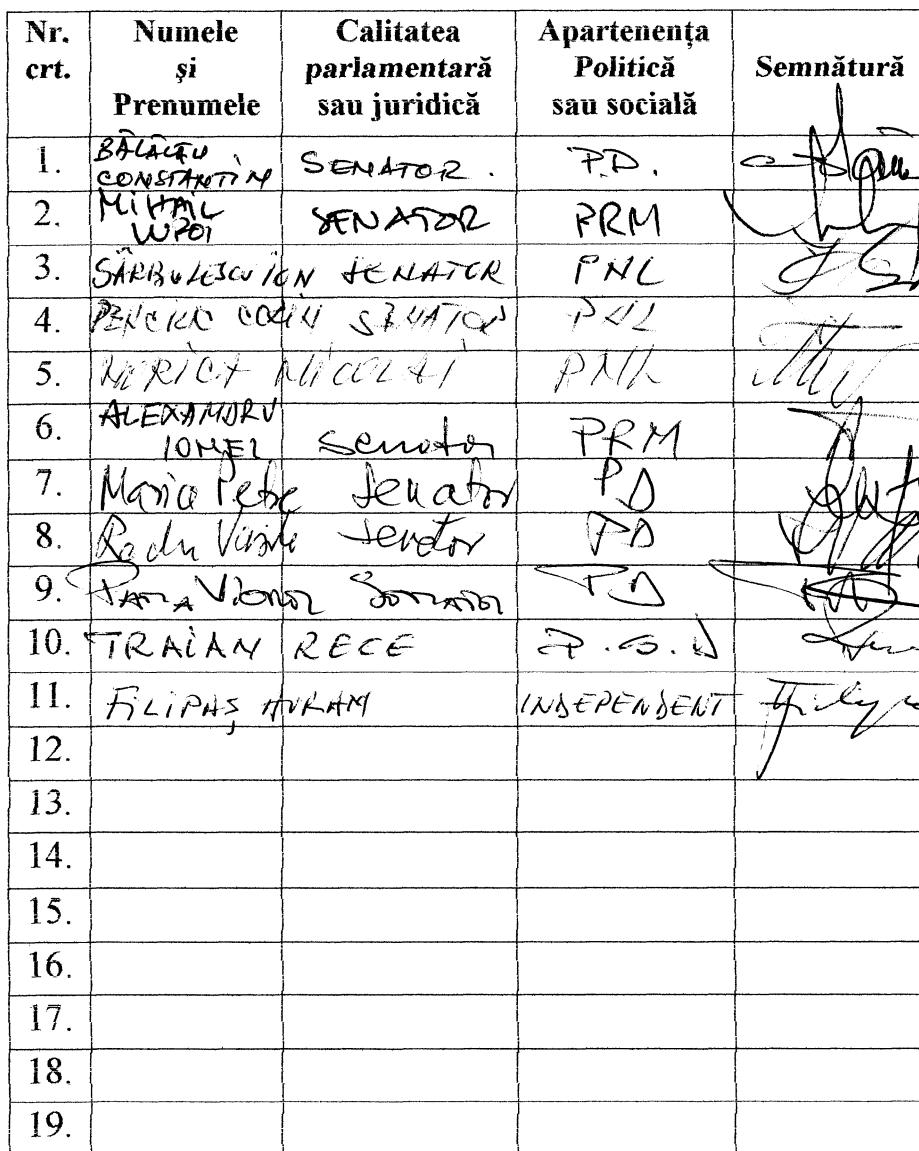 Nr. crt. Numele și Prenumele Calitatea parlamentară sau juridică Apartenența Politică sau socială Semnătură
1. BĂLĂLĂU CONSTANTIN SENATOR. P.D.
2. MIHAIL LUPOI SENATOR PRM
3. SÂRBULESCU ION SENATOR PNL
4. PENCIUC CORIN SENATOR PNL
5. NORICA NICOLAI PNL
6. ALEXANDRU IONEL Senator PRM
7. Maria Petre Senator PD
8. Radu Vasile Senator PD
9. Senator PD
10. TRAIAN RECE P.S.D
11. FILIPAȘ AVRAM INDEPENDENT
12.
13.
14.
15.
16.
17.
18.
19.